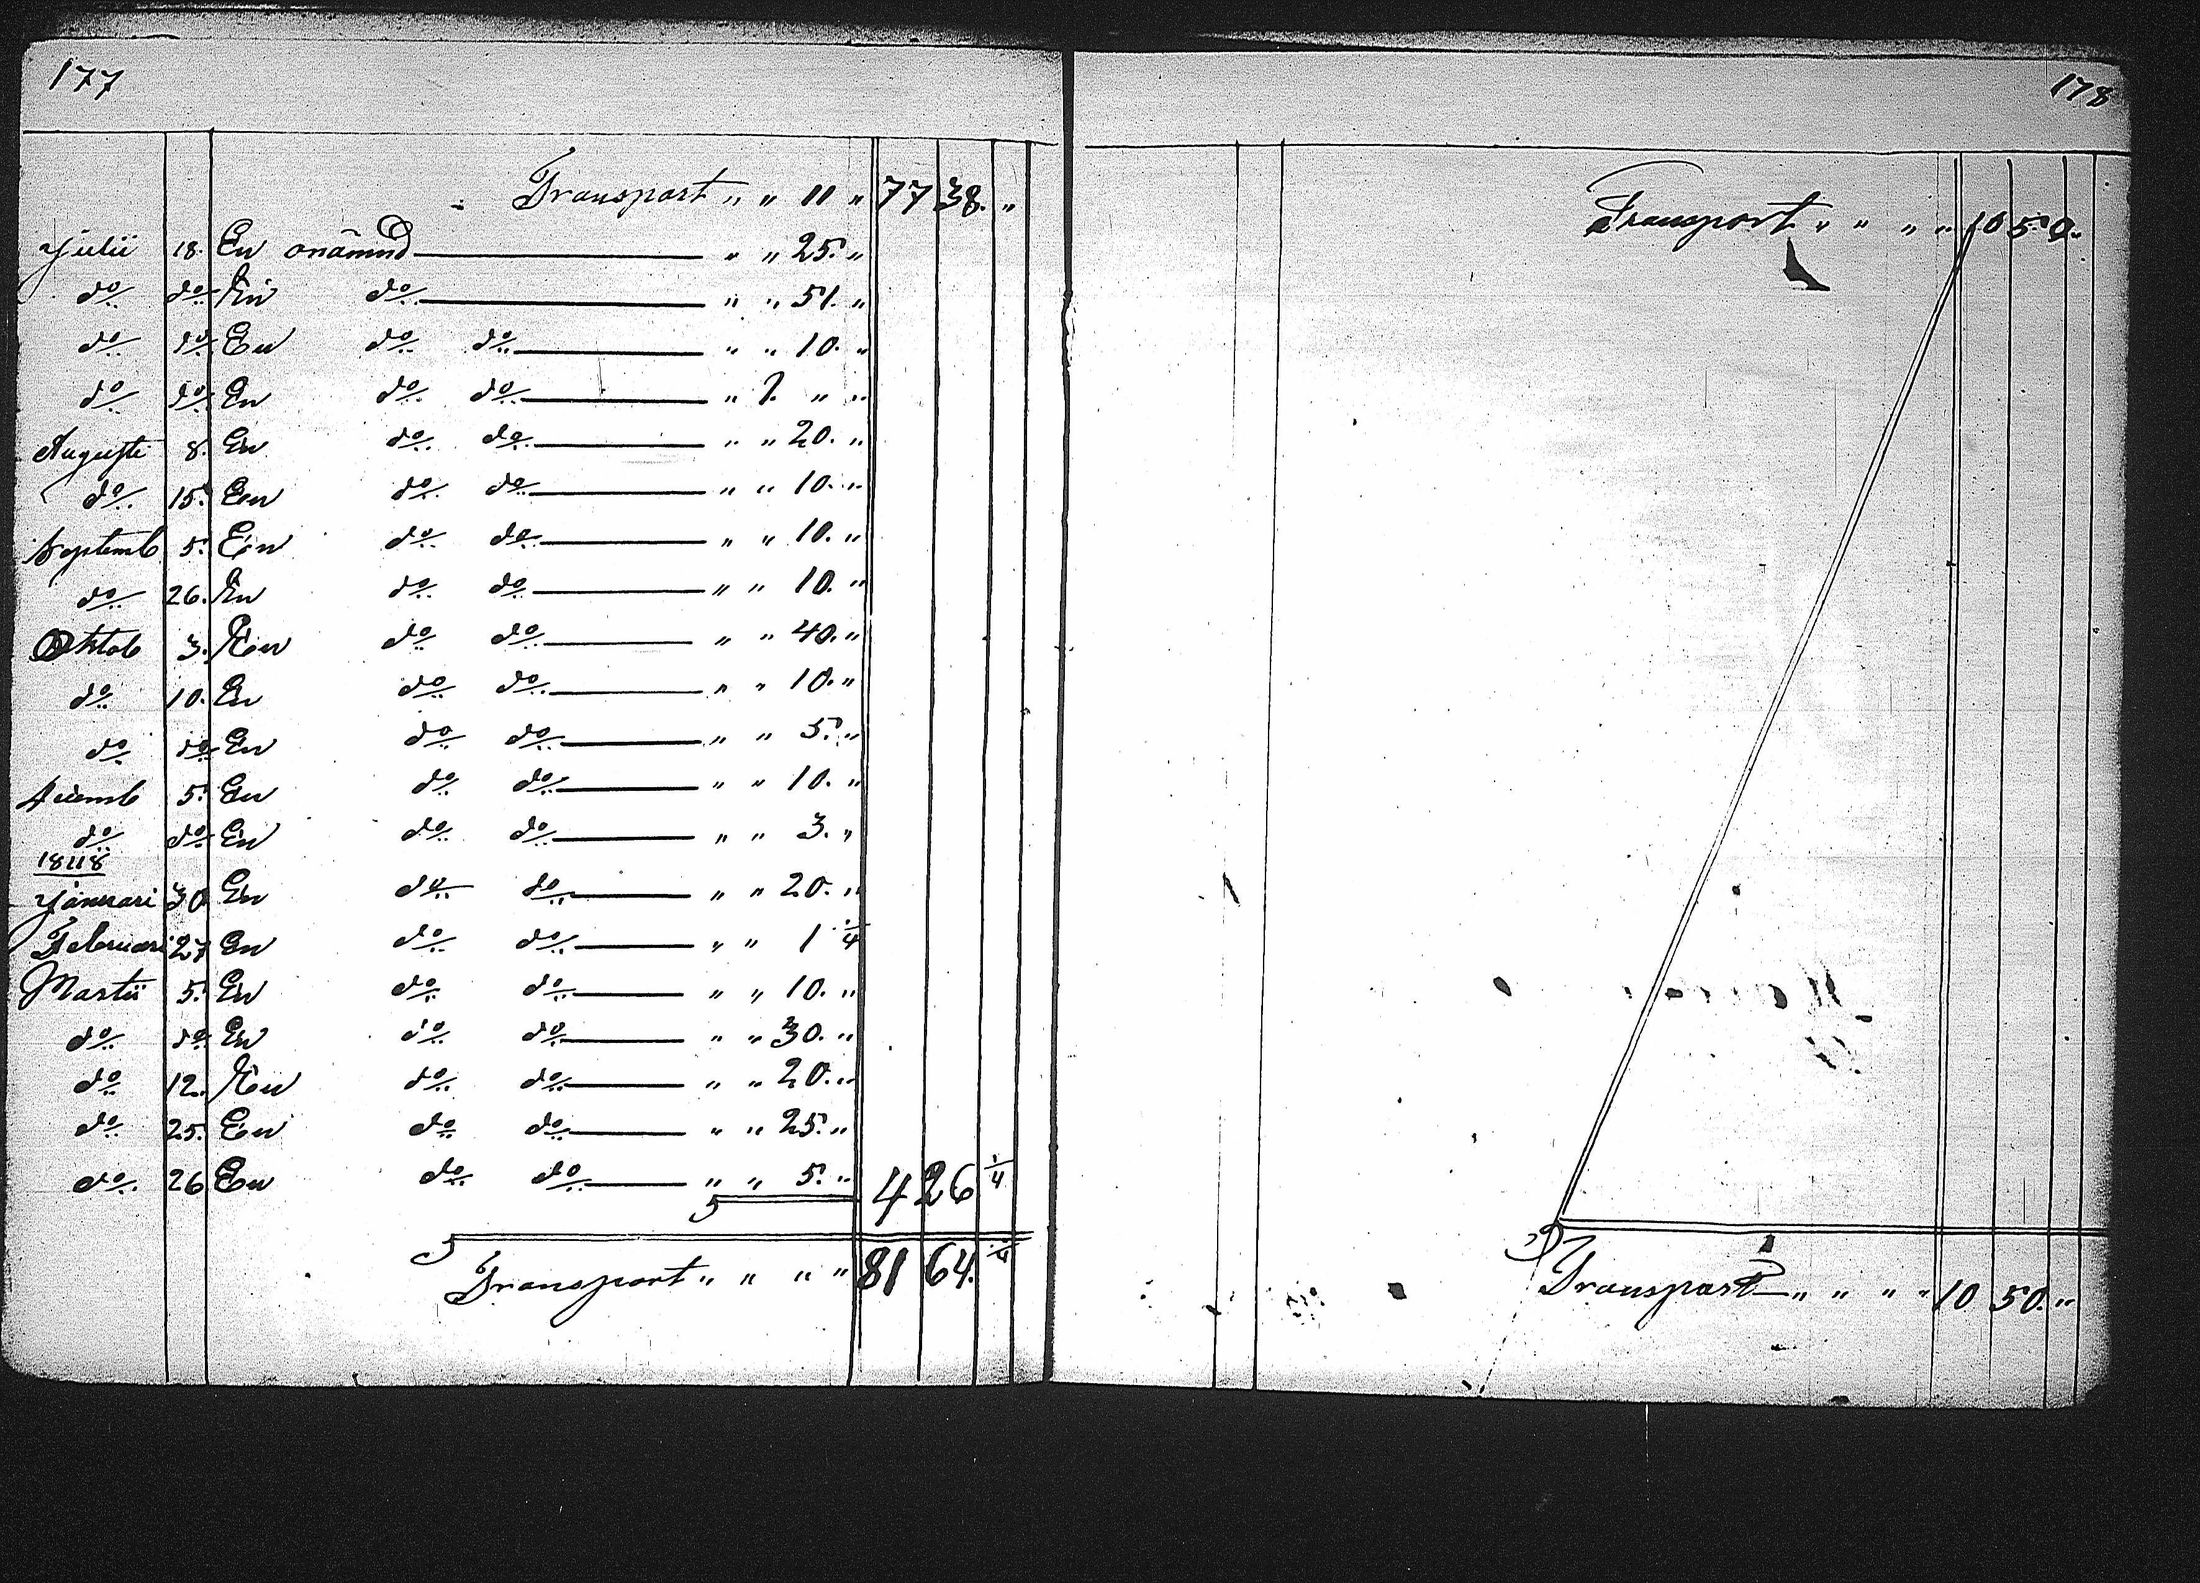 177
Transport " " 11 " 77 38. "
Julii 18. En onämnd " " 25. "
do do En do " " 51. "
do do En do do " " 10. "
do do En do do " 1. " "
Augusti 8. En do do " " 20. "
do 15. En do do " " 10. "
Septemb 5. En do do " " 10. "
do 26. En do do " " 10. "
Oktob 3. En do do " " 40. "
do 10. En do do " " 10. "
do do En do do " " 5. "
Decemb 5. En do do " " 10. "
do do En do do " " 3. "
1848
Januari 30 En do do " " 20. "
Februari 27 En do do " " 1 1/4
Martii 5. En do do " " 10. "
do do En do do " " 30. "
do 12. En do do " " 20. "
do 25. En do do " " 25. "
do. 26 En do do " " 5. " 4 26 1/4
Transport " " " " 81 64. 1/4
178
Transport " " " " 10 50.
Transport " " " " 10 50. "